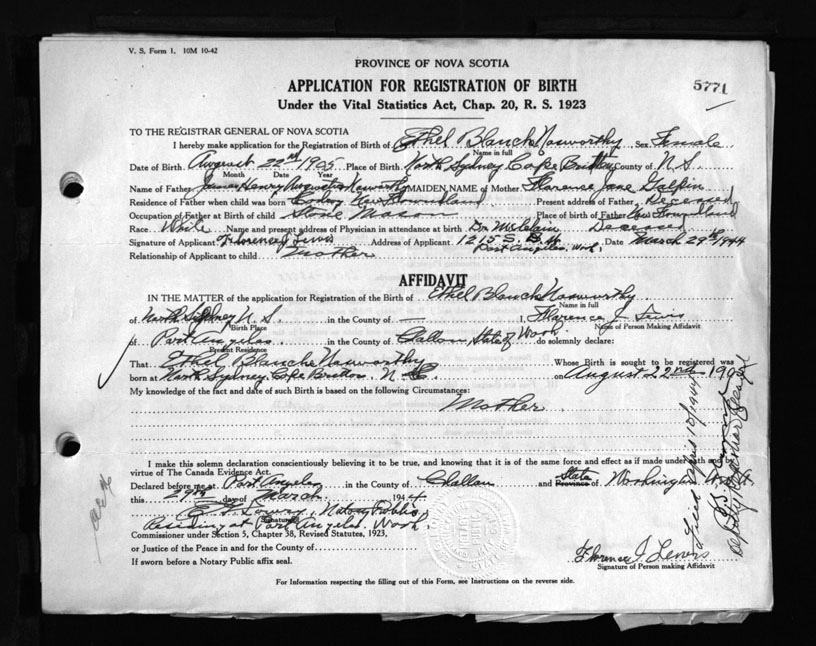 V. S. Form 1. 10M 10-42
PROVINCE OF NOVA SCOTIA
5771
APPLICATION FOR REGISTRATION OF BIRTH
Under the Vital Statistics Act, Chap. 20, R. S. 1923
TO THE REGISTRAR GENERAL OF NOVA SCOTIA
I hereby make application for the Registration of Birth of Ethel Blanche Nosworthy Sex Female
Name in full
Date of Birth August 22nd 1905 Place of Birth North Sydney Cape Britton County of N.S.
Month Date Year
Name of Father James Henry Augustus Nosworthy MAIDEN NAME of Mother Florence Jane Galpin
Residence of Father when child was born Codroy New Foundland Present address of Father Deceased
Occupation of Father at Birth of child Stone Mason Place of birth of Father New Foundland
Race White Name and present address of Physician in attendance at birth Dr. Deceased
Signature of Applicant Florence J Lewis Address of Applicant 1215 S. Date March 29th 1944
Port Angeles, Wash.
Relationship of Applicant to child Mother
AFFIDAVIT
IN THE MATTER of the application for Registration of the Birth of Ethel Blanche Nosworthy
of North Sydney N. S. in the County of — I, Florence J. Lewis
Birth Place Name of Person Making Affidavit
of Port Angeles in the County of Clallam State of Wash. do solemnly declare:
Present Residence
That Ethel Blanche Nosworthy Whose Birth is sought to be registered was
born at North Sydney Cape Britton, N. on August 22nd 1905
My knowledge of the fact and date of such Birth is based on the following Circumstances:
Mother.
I make this solemn declaration conscientiously believing it to be true, and knowing that it is of the same force and effect as if made under oath and by
virtue of The Canada Evidence Act.
Declared before me at Port Angeles in the County of Clallam and State Province of Washington
this 29th day of March 1944
Notary Public
Signature
Residing at Port Angeles, Wash.
Commissioner under Section 5, Chapter 38, Revised Statutes, 1923,
or Justice of the Peace in and for the County of
If sworn before a Notary Public affix seal.
Florence J. Lewis
Signature of Person making Affidavit
For Information respecting the filling out of this Form, see Instructions on the reverse side.